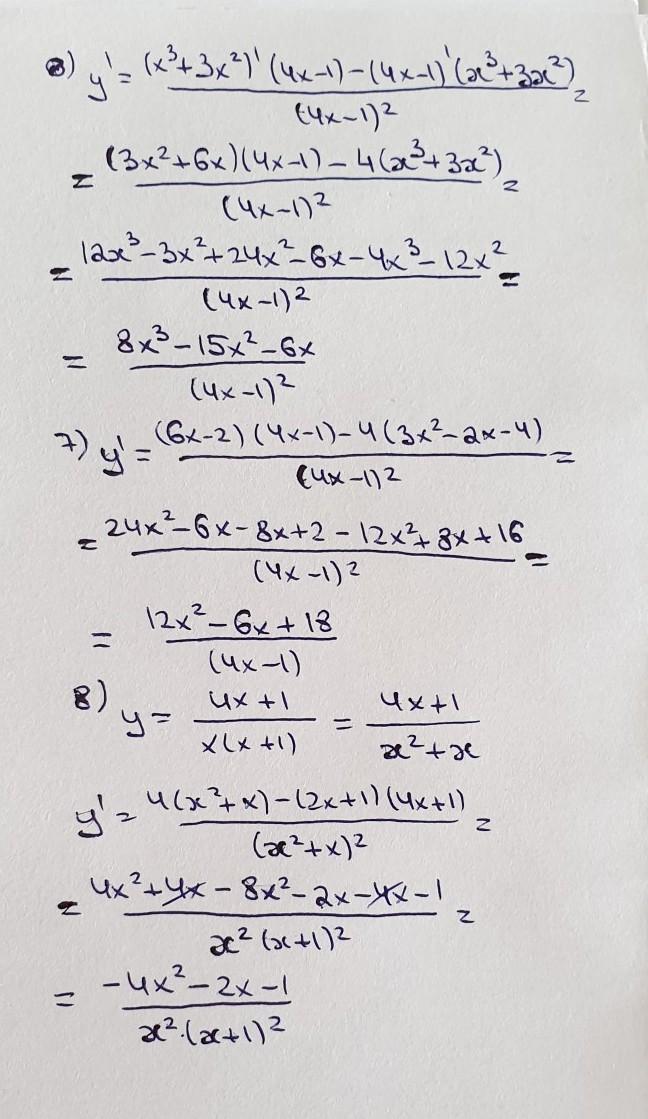 8) y' = ((x³+3x²)'(4x-1)-(4x-1)'(x³+3x²))/(4x-1)² =
= ((3x²+6x)(4x-1)-4(x³+3x²))/(4x-1)² =
= (12x³-3x²+24x²-6x-4x³-12x²)/(4x-1)² =
= (8x³-15x²-6x)/(4x-1)²
7) y' = ((6x-2)(4x-1)-4(3x²-2x-4))/(4x-1)² =
= (24x²-6x-8x+2-12x²+8x+16)/(4x-1)² =
= (12x²-6x+18)/(4x-1)
8) y = (4x+1)/(x(x+1)) = (4x+1)/(x²+x)
y' = (4(x²+x)-(2x+1)(4x+1))/(x²+x)² =
= (4x²+4x-8x²-2x-4x-1)/(x²(x+1)²) =
= (-4x²-2x-1)/(x²·(x+1)²)